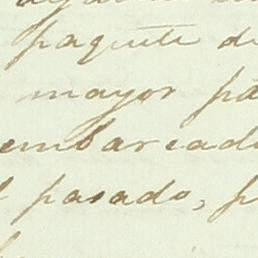 paquete de
mayor pa
embarcado
l pasado, p